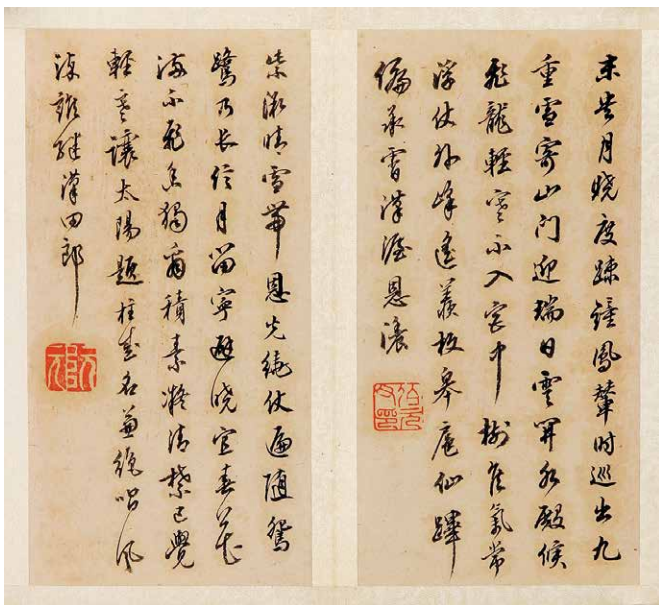 未央月曉度疎鐘鳳輦時巡出九
重雪霽山门迎瑞日雲開水殿候
飛龍輕寒不入宮中樹佳氣常
浮仗外峰遙羨枚皋扈仙蹕
偏承霄漢渥恩濃
紫微晴雪帶恩光繞仗遍随鴛
鷺行長信月留寧避曉宜春花
滿不飛香獨看積素凝清禁已覺
輕寒讓太陽題柱盛名兼絶唱風
流誰繼漢田郎